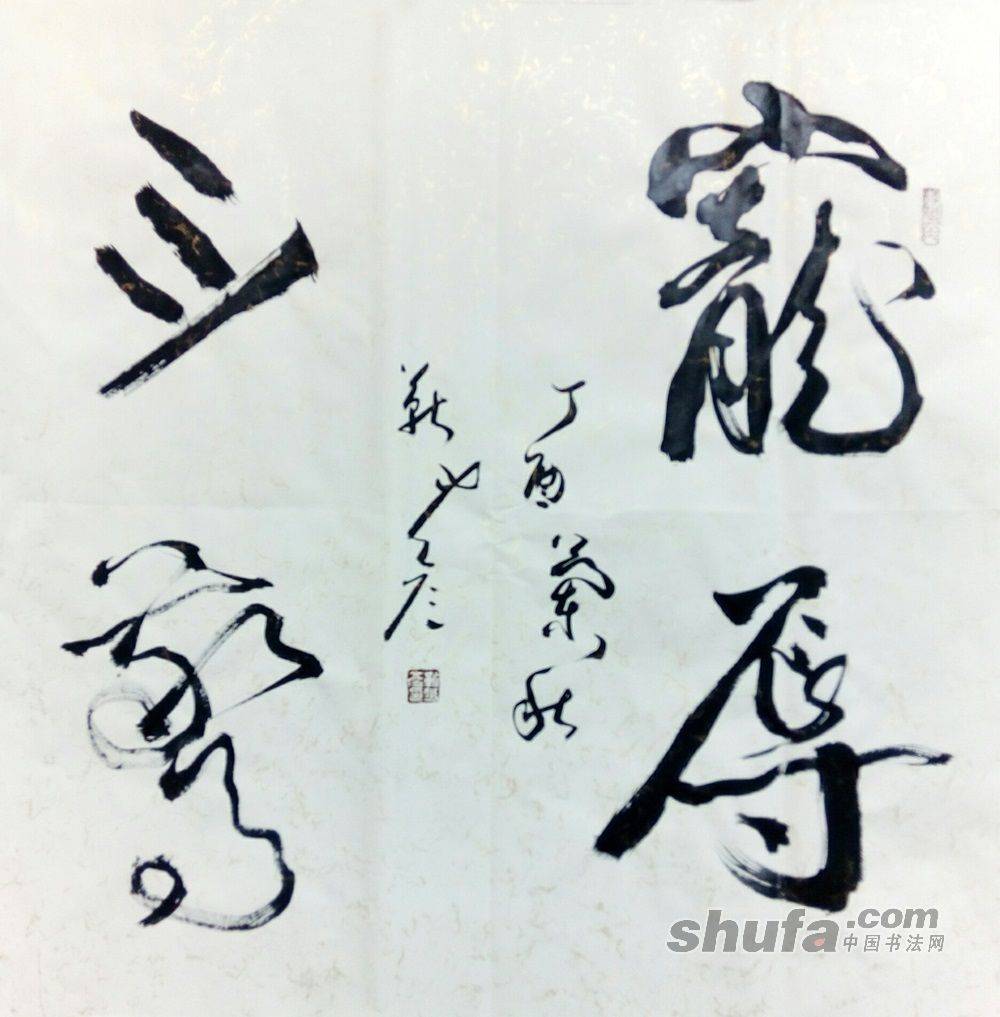 寵辱
不驚
丁酉蘭秋
靳
shufa.com
中国书法网